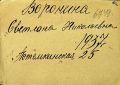 Воронина
Светлана Николаевна
1937
Астраханская 25